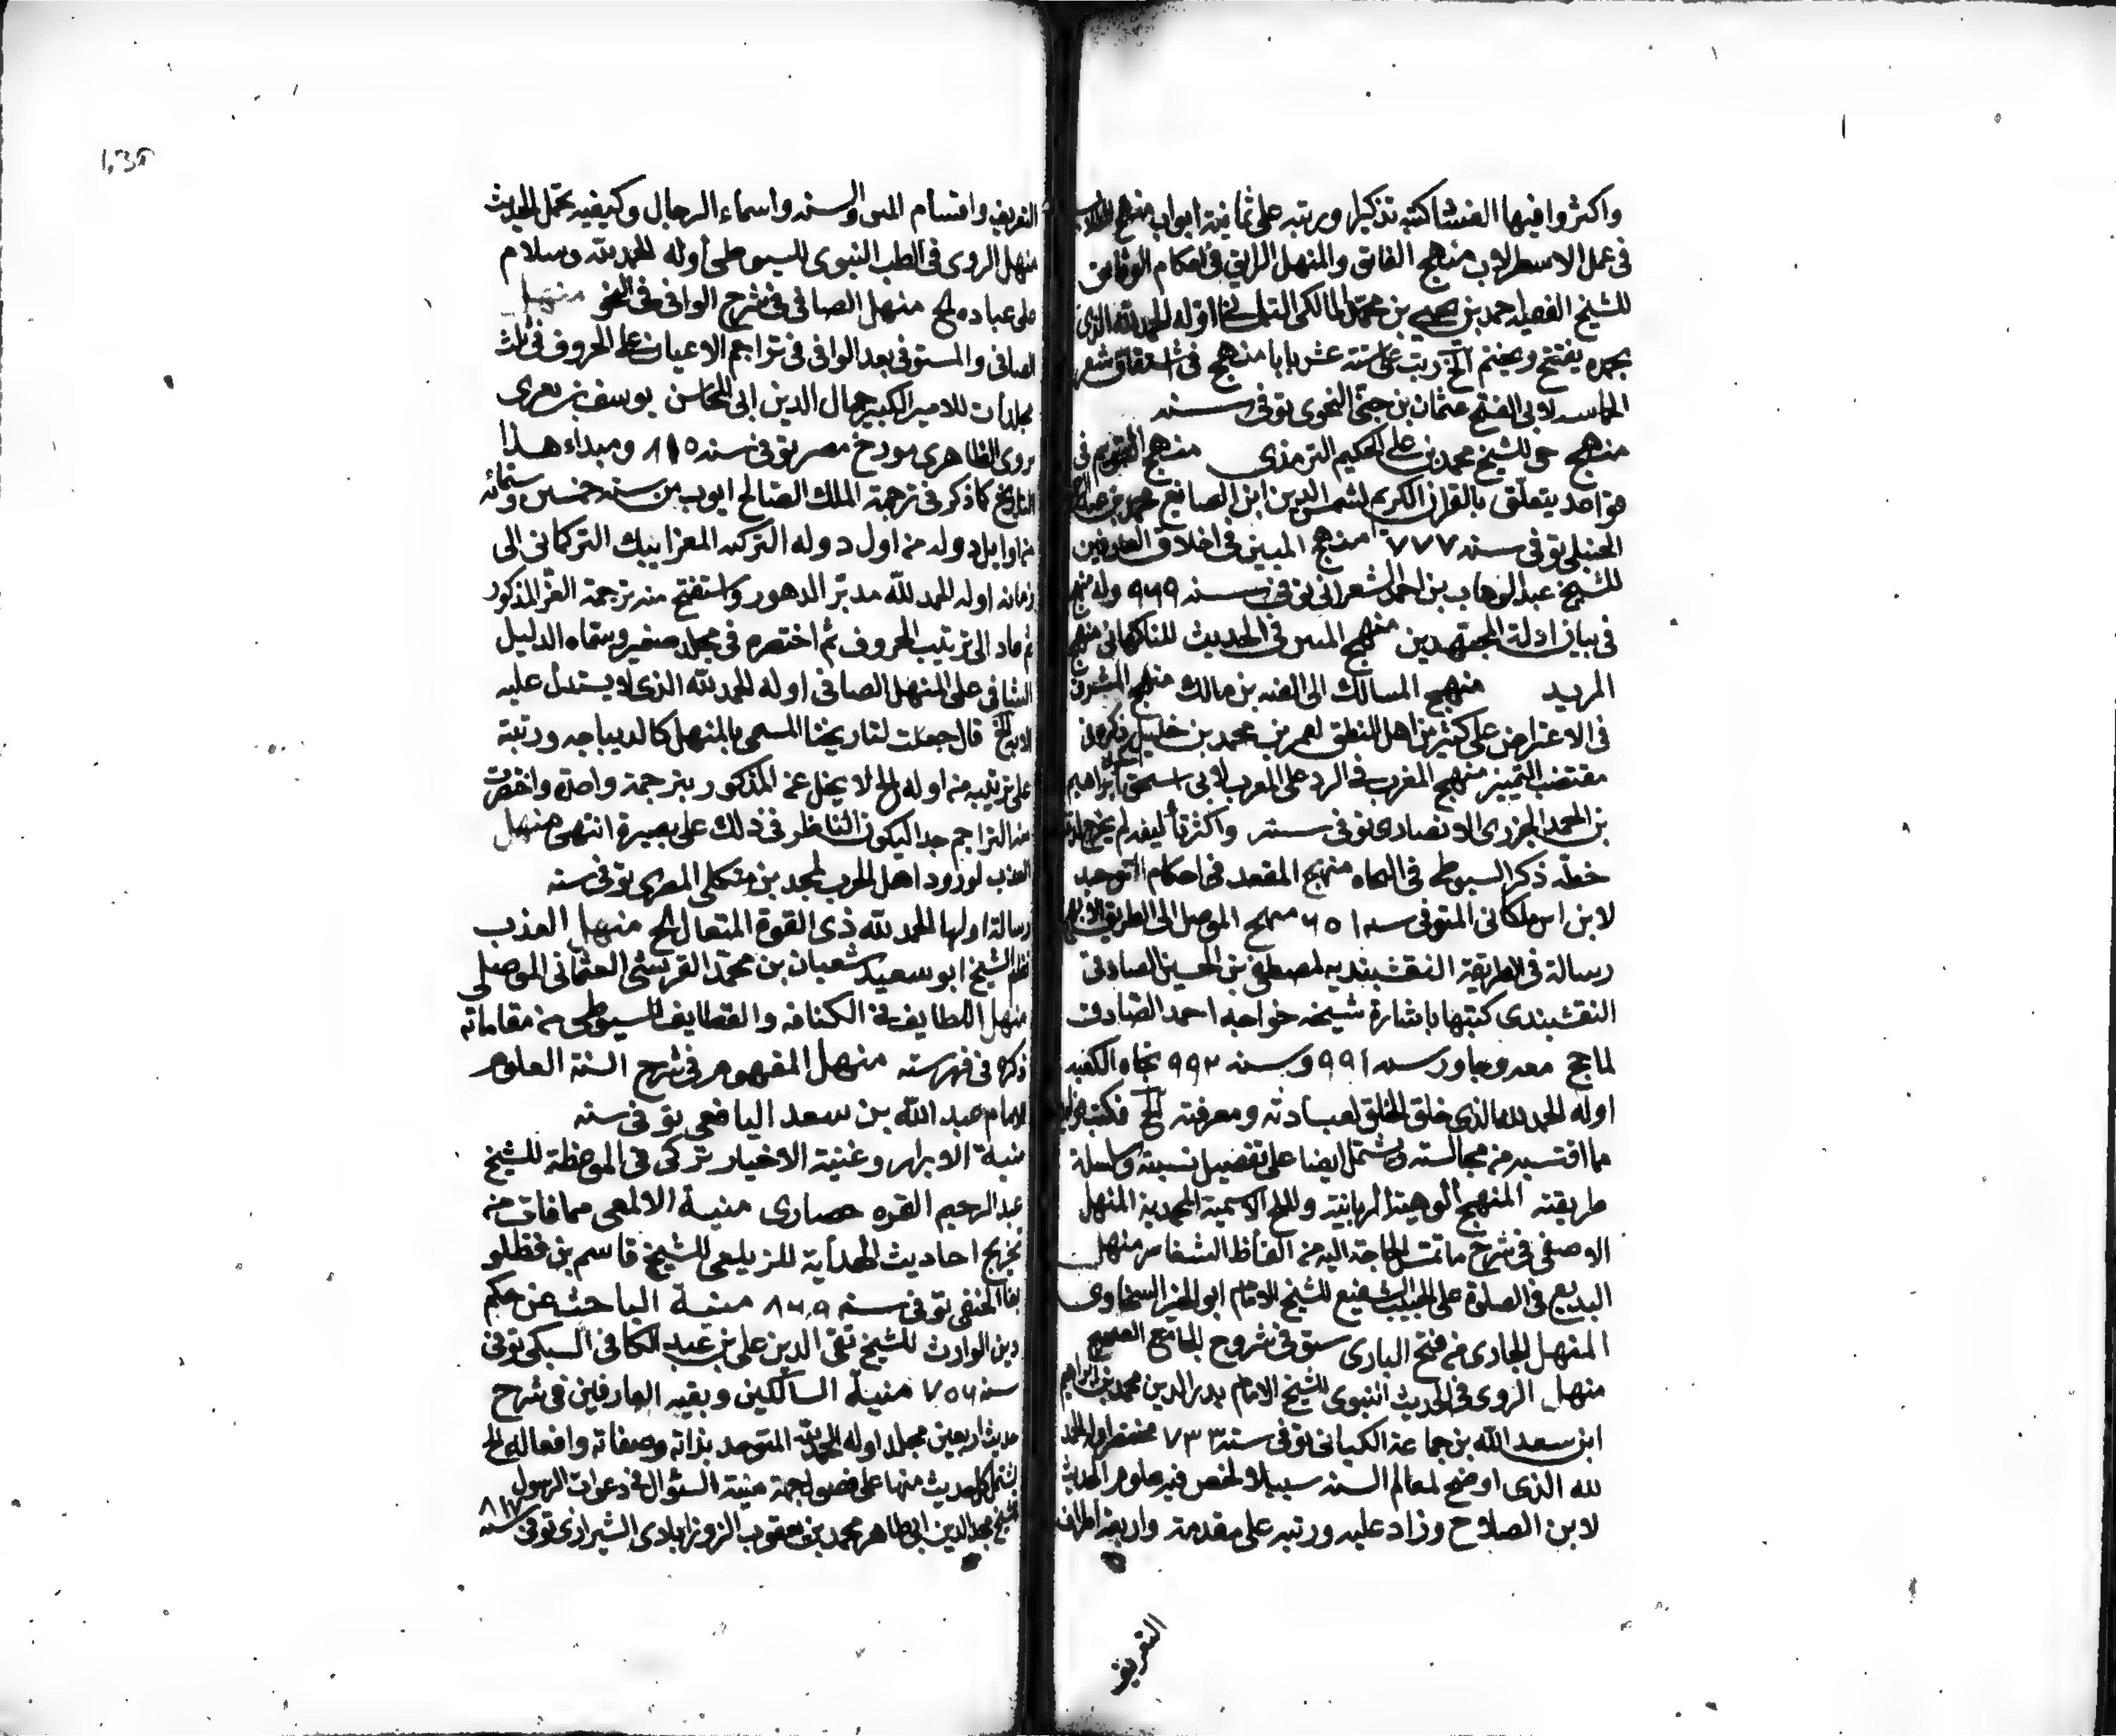 واكثروا فيها الفتشا كتبه تذكيرا ورتبه على ثمانية ابواب منهج
فى عمل الاسطرلاب منهج الفائق والمنهل الرائق فى احكام الوثائق
للشيخ احمد بن يحيى بن محمد المالكى اوله الحمد لله الذى
بحمده يفتتح ويختم الخ رتب على ستة عشر بابا منهج فى اشتقاق شعر
الحماسه لابى الفتح عثمان بن جنى النحوى توفى سنه
منهج للشيخ محمد بن على الحكيم الترمذى منهج القويم فى
قواعد يتعلق بالقران الكريم لشمس الدين ابن الصايغ محمد بن
الحنبلى توفى سنه ٧٧٧ منهج المبين فى اخلاق العارفين
للشيخ عبد الوهاب بن احمد الشعرانى توفى سنه ٩٦٩ وله منهج
فى بيان ادلة المجتهدين منهج المبين فى الحديث منهج
المريد منهج المسالك الى الفيه بن مالك منهج
فى الاعتراض على كثير من اهل المنطق لعمر بن محمد بن خليل
مقتضب التمييز منهج المغرب فى الرد على المعرب لابى اسحق ابراهيم
بن احمد الجزرى الانصارى توفى سنه واكثر تأليفه لم يخرج
خطه ذكر السيوطى فى النحاه منهج المفيد فى احكام التوحيد
لابن الزملكانى المتوفى سنه ٦٥١ منهج الموصل الى الطريق الابهج
رسالة فى الطريقة النقشبنديه لمصطفى بن الحسين الصادقى
النقشبندى كتبها باشارة شيخه خواجه احمد الصادق
لما حج معه وجاور سنه ٩٩١ وسنه ٩٩٢ تجاه الكعبه
اوله الحمد لله الذى خلق الخلق لعبادته ومعرفته الخ فكتب
مما اقتبسه من مجالسته ويشتمل ايضا على تفصيل نسبته وسلسلة
طريقته المنهج الوهبية الربانية المحمدية المنهل
الاوصفى فى شرح ما تمس الحاجة اليه من الفاظ الشفا منهل
البديع فى الصلوة على الحبيب الشفيع للشيخ الامام ابو الخير السخاوى
المنهل الجارى من فتح البارى سبق فى شروح الجامع الصحيح
منهل الروى فى الحديث النبوى للشيخ الامام بدر الدين محمد بن ابراهيم
ابن سعد الله بن جماعة الكنانى توفى سنه ٧٣٣ مختصر اوله الحمد
لله الذى اوضح لمعالم السنه سبيلا لخص فيه علوم الحديث
لابن الصلاح وزاد عليه ورتبه على مقدمة واربعة اطراف
التعريف
التعريف واقسام المتن والسند واسماء الرجال وكيفيه تحمل الحديث
منهل الروى فى الطب النبوى للسيوطى اوله الحمد لله وسلام
على عباده الخ منهل الصافى فى شرح الوافى فى النحو منهل
الصافى والمستوفى بعد الوافى فى تراجم الاعيان على الحروف فى ثلث
مجلدات للامير الكبير جمال الدين ابى المحاسن يوسف بن تغرى
بردى الظاهرى مورخ مصر توفى سنه ٨١٥ ومبداء هذا
التاريخ كما ذكر فى ترجمة الملك الصالح ايوب من سنه خمسين وستمائه
من اوايل دوله من اول دوله التركيه المعز ايبك التركمانى الى
زمانه اوله الحمد لله مدبر الدهور واستفتح منه بترجمة المعز المذكور
ثم عاد الى ترتيب الحروف ثم اختصره فى مجلد صغير وسماه الدليل
الشافى على المنهل الصافى اوله الحمد لله الذى لا يستدل عليه
الا به الخ قال جعلت لتاريخنا المسمى بالمنهل كالديباجه ورتبته
على ترتيبه من اوله الخ لا يخل عن المذكور بترجمة واحدة واختصرت
منه التراجم جدا ليكون الناظر فى ذلك على بصيرة انتهى منهل
العذب لورود اهل الحرب لمحمد بن منكلى المصرى توفى سنه
رسالة اولها الحمد لله ذى القوة المتعال الخ منهل العذب
نظم الشيخ ابو سعيد شعبان بن محمد القرشى العثمانى الموصلى
منهل اللطايف فى الكنافه والقطايف للسيوطى من مقاماته
ذكره فى فهرسته منهل المفهوم فى شرح السنة العلوم
للامام عبد الله بن سعد اليافعى توفى سنه
منية الابرار وغنية الاخيار تركى فى الموعظة للشيخ
عبد الرحيم القره حصارى منية الالمعى مما فات من
تخريج احاديث الهداية للزيلعى للشيخ قاسم بن قطلو
بغا الحنفى توفى سنه ٨٧٩ منية الباحث عن حكم
دين الوارث للشيخ تقى الدين على بن عبد الكافى السبكى توفى
سنه ٧٥٦ منية السالكين وبغيه العارفين فى شرح
حديث اربعين مجلد اوله الحمد لله المتوحد بذاته وصفاته وافعاله الخ
يشتمل كل حديث منها على فصول جمة منية السئوال فى دعوات الرسول
للشيخ مجد الدين ابى طاهر محمد بن يعقوب الفيروزابادى الشيرازى توفى سنه ٨١٧